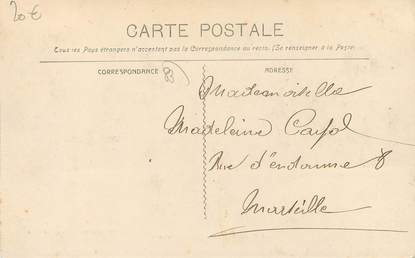 20 €
CARTE POSTALE
Tous les Pays étrangers n'acceptent pas la Correspondance au recto. (Se renseigner à la Poste)
CORRESPONDANCE
83
ADRESSE
Mademoiselle
Madeleine Cayol
Rue d'endoume 8
Marseille